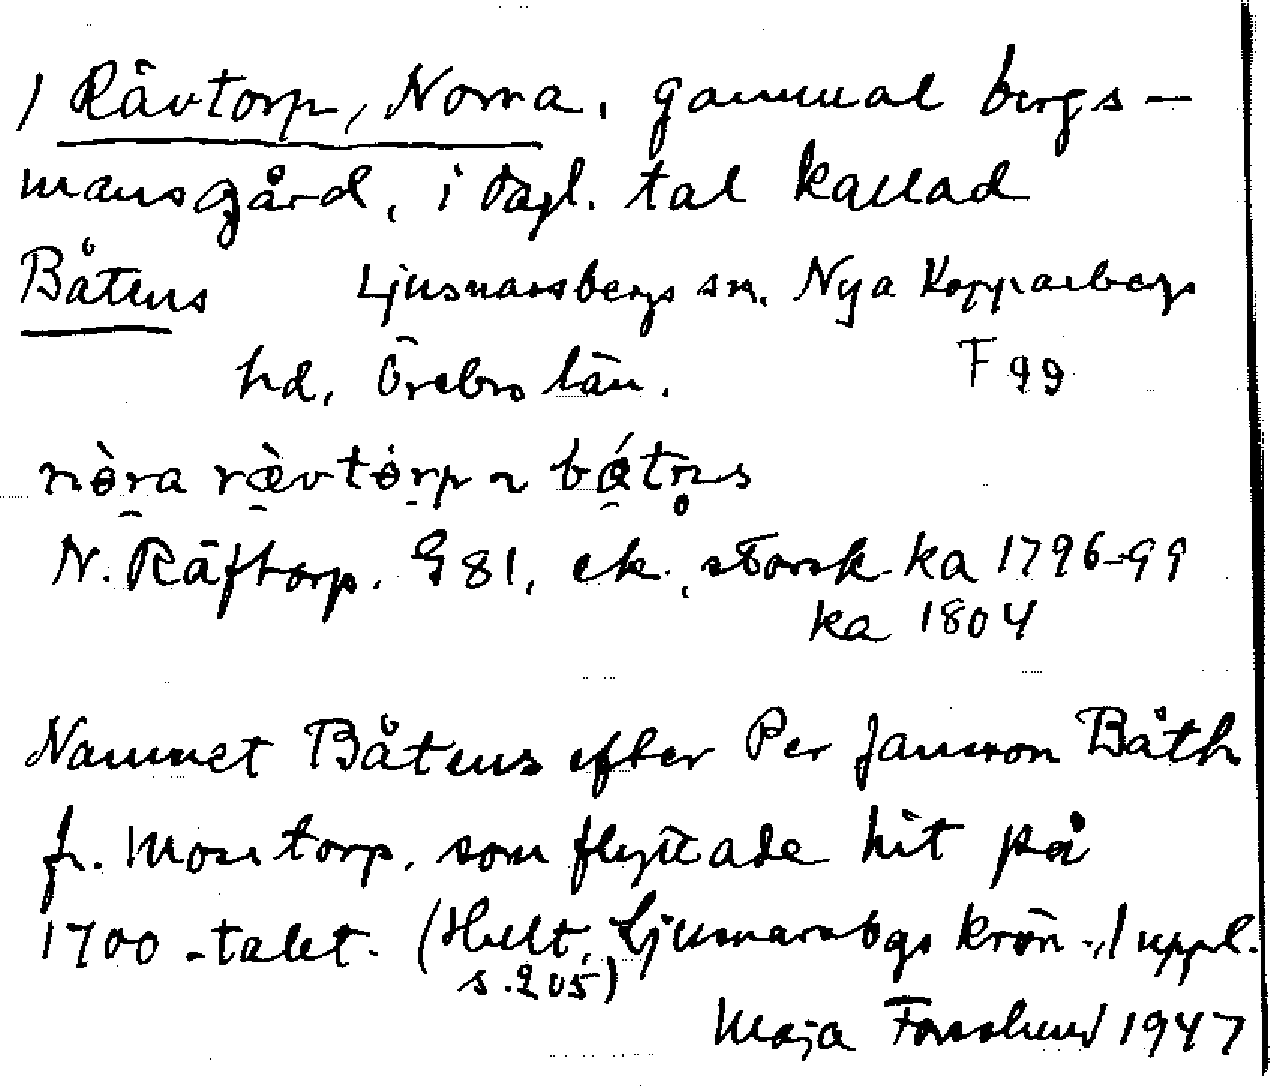 / Rävtorp, Norra, gammal bergs-
mansgård, i dagl. tal kallad
Båtens Ljusnarsbergs sn. Nya Kopparbergs
hd, Örebro län. F 99
nöra rävtörp ~ båtns
N. Räftorp. G 81, ek., storsk ka 1796-99
ka 1804
Namnet Båtens efter Per Jansson Båth
fr. Mossetorp, som flyttade hit på
1700-talet. (Hult, Ljusnarsbgs krön., 1 uppl.
s. 205)
Maja Forsslund 1947